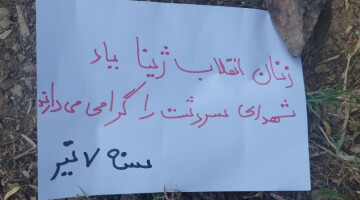 زنان انقلاب ژینا یاد
شهدای سردشت را گرامی می‌دارند
سنه ۷ تیر